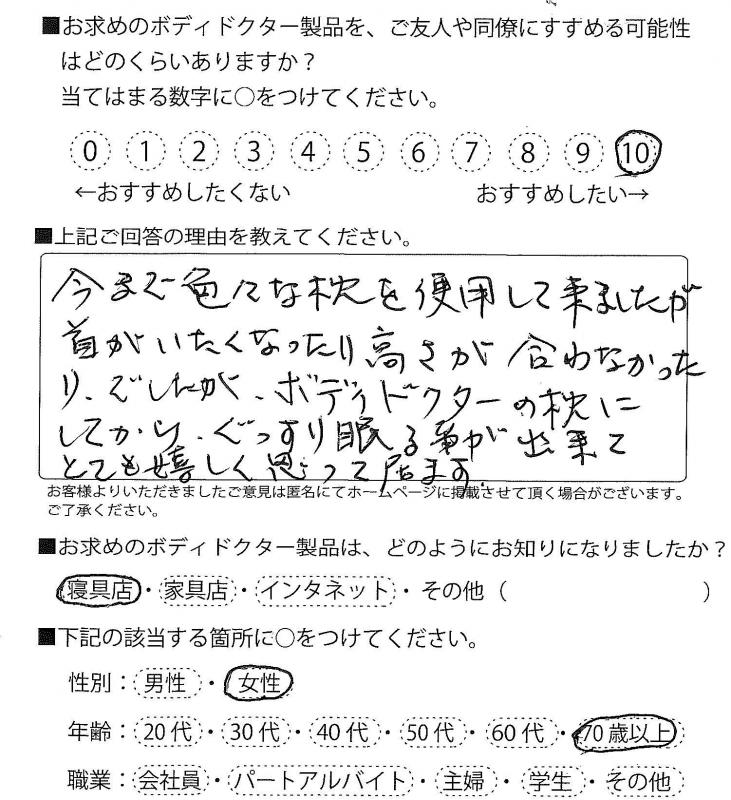 ■お求めのボディドクター製品を、ご友人や同僚にすすめる可能性
はどのくらいありますか？
当てはまる数字に○をつけてください。
0 1 2 3 4 5 6 7 8 9 10
←おすすめしたくない おすすめしたい→
■上記ご回答の理由を教えてください。
今まで色々な枕を使用して来ましたが
首がいたくなったり高さが合わなかった
り、でしたが、ボディドクターの枕に
してから、ぐっすり眠る事が出来て
とても嬉しく思って居ます.
お客様よりいただきましたご意見は匿名にてホームページに掲載させて頂く場合がございます。
ご了承ください。
■お求めのボディドクター製品は、どのようにお知りになりましたか？
寝具店・家具店・インタネット・その他（ ）
■下記の該当する箇所に○をつけてください。
性別：男性・女性
年齢：20代・30代・40代・50代・60代・70歳以上
職業：会社員・パートアルバイト・主婦・学生・その他